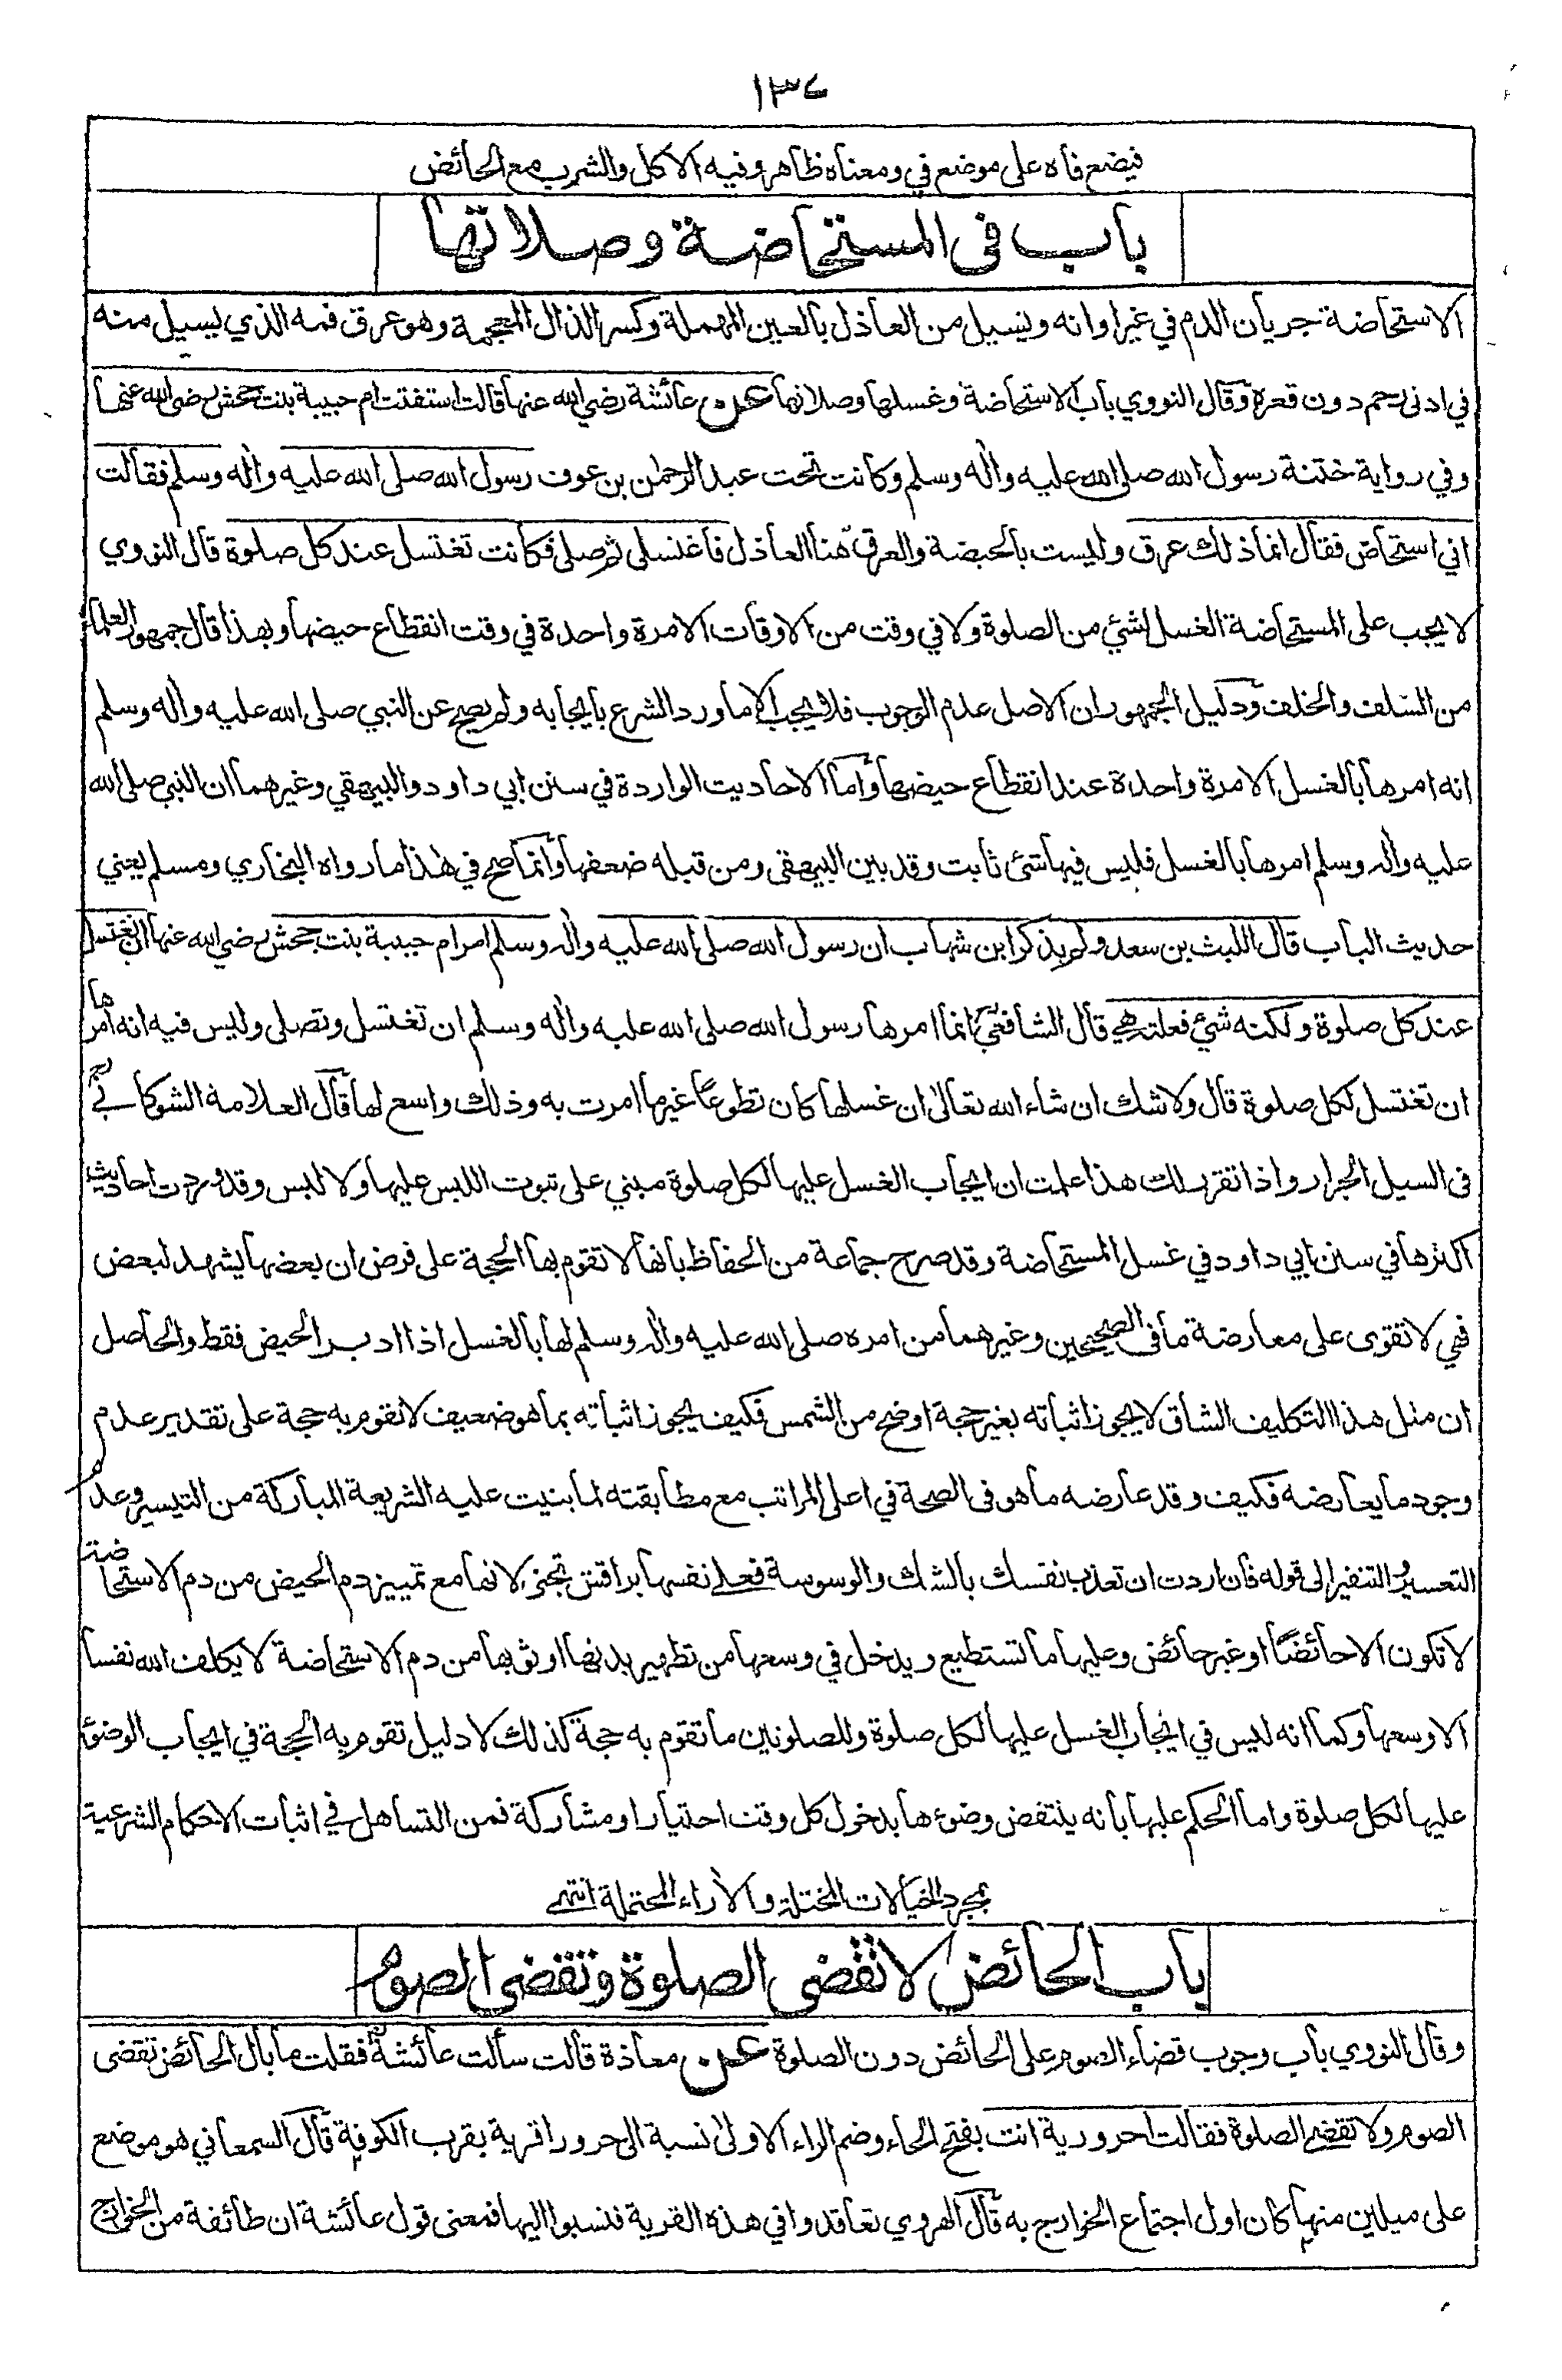 ١٣٤
فيضع فاه على موضع في ومعناه ظاهر وفيه الاكل والشرب مع الحائض
باب فى المستحاضة وصلاتها
الاستحاضة جريان الدم في غير اوانه ويسيل من العاذل بالعين المهملة وكسر الذال المعجمة وهو عرق فمه الذي يسيل منه
في ادنى رحم دون قعره وقال النووي باب الاستحاضة وغسلها وصلاتها عن عائشة رضي الله عنها قالت استفتت ام حبيبة بنت جحش رضي الله عنها
وفي رواية ختنة رسول الله صلى الله عليه واٰله وسلم وكانت تحت عبد الرحمٰن بن عوف رسول الله صلى الله عليه واٰله وسلم فقالت
اني استحاض فقال انما ذلك عرق وليست بالحيضة والعرق هنا العاذل فاغتسلى ثم صلى فكانت تغتسل عند كل صلوة قال النووي
لا يجب على المستحاضة الغسل لشئ من الصلوة ولا في وقت من الاوقات الا مرة واحدة في وقت انقطاع حيضها وبهذا قال جمهور العلماء
من السلف والخلف ودليل الجمهور ان الاصل عدم الوجوب فلا يجب الا ما ورد الشرع بايجابه ولم يصح عن النبي صلى الله عليه واٰله وسلم
انه امرها بالغسل الا مرة واحدة عند انقطاع حيضها واما الاحاديث الواردة في سنن ابي داود والبيهقي وغيرهما ان النبي صلى الله
عليه واٰله وسلم امرها بالغسل فليس فيها شئ ثابت وقد بين البيهقى ومن قبله ضعفها وانما صح في هٰذا ما رواه البخاري ومسلم يعني
حديث الباب قال الليث بن سعد ولم يذكر ابن شهاب ان رسول الله صلى الله عليه واٰله وسلم امر ام حبيبة بنت جحش رضي الله عنها ان تغتسل
عند كل صلوة ولكنه شئ فعلته هي قال الشافعي انما امرها رسول الله صلى الله عليه واٰله وسلم ان تغتسل وتصلى وليس فيه انه امرها
ان تغتسل لكل صلوة قال ولا شك ان شاء الله تعالىٰ ان غسلها كان تطوعًا غير ما امرت به وذلك واسع لها قال العلامة الشوكاني رح
فى السيل الجرار واذا تقرر لك هذا علمت ان ايجاب الغسل عليها لكل صلوة مبني على ثبوت اللبس عليها ولا لبس وقد وردت احاديث
اكثرها في سنن ابي داود في غسل المستحاضة وقد صرح جماعة من الحفاظ بانها لا تقوم بها الحجة على فرض ان بعضها يشهد لبعض
فهي لا تقوى على معارضة ما فى الصحيحين وغيرهما من امره صلى الله عليه واٰله وسلم لها بالغسل اذا ادبر الحيض فقط والحاصل
ان مثل هذا التكليف الشاق لا يجوز اثباته بغير حجة اوضح من الشمس فكيف يجوز اثباته بما هو ضعيف لا تقوم به حجة على تقدير عدم
وجود ما يعارضه فكيف وقد عارضه ما هو فى الصحة في اعلى المراتب مع مطابقته لما بنيت عليه الشريعة المباركة من التيسير وعدم
التعسير والتنفير الى قوله فان اردت ان تعذب نفسك بالشك والوسوسة فعلى نفسها براقش تجني لانها مع تمييز دم الحيض من دم الاستحاضة
لا تكون الا حائضًا او غير حائض وعليها ما تستطيع ويدخل في وسعها من تطهير بدنها او ثوبها من دم الاستحاضة لا يكلف الله نفسا
الا وسعها وكما انه ليس في ايجاب الغسل عليها لكل صلوة وللصلوتين ما تقوم به حجة كذلك لا دليل تقوم به الحجة في ايجاب الوضوء
عليها لكل صلوة واما الحكم عليها بانه ينتقض وضوءها بدخول كل وقت اختيار او مشاركة فمن التساهل في اثبات الاحكام الشرعية
بمجرد الخيالات المختلة والاٰراء المحتملة انتهى
باب الحائض لا تقضى الصلوة وتقضى الصوم
وقال النووي باب وجوب قضاء الصوم على الحائض دون الصلوة عن معاذة قالت سألت عائشة فقلت ما بال الحائض تقضى
الصوم ولا تقضى الصلوة فقالت احرورية انت بفتح الحاء وضم الراء الاولىٰ نسبة الى حرورا قرية بقرب الكوفة قال السمعاني هو موضع
على ميلين منها كان اول اجتماع الخوارج به قال الهروي تعاقدوا في هذه القرية فنسبوا اليها فمعنى قول عائشة ان طائفة من الخوارج